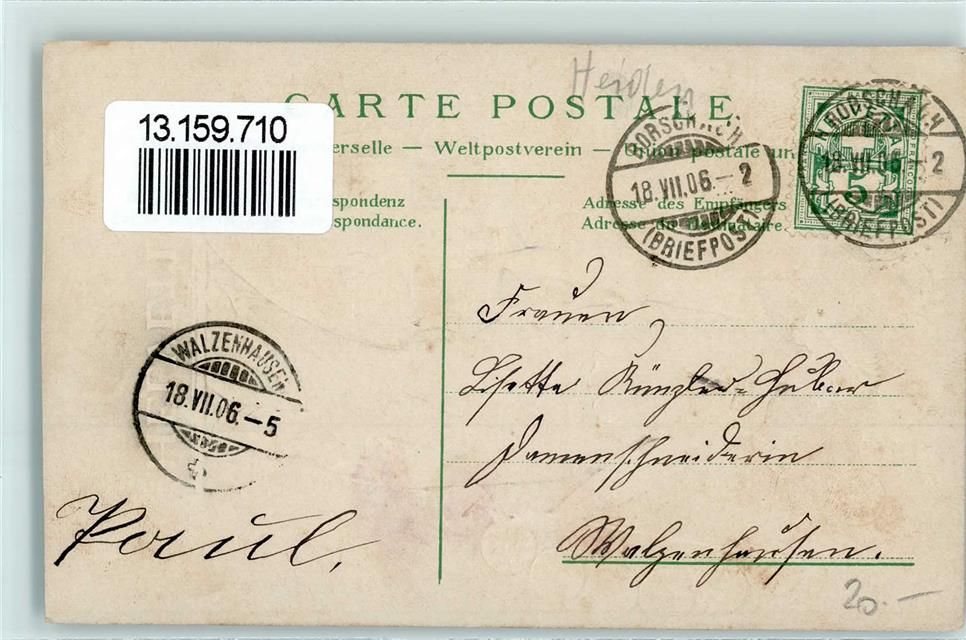 Heiden
CARTE POSTALE
13.159.710
erselle — Weltpostverein — Union postale un
spondenz
spondance.
Adresse des Empfängers
Adresse du Destinataire.
RORSCHACH
18.VII.06.-2
(BRIEFPOST)
18.VII.06.-2
(BRIEFPOST)
FRANCO
5
WALZENHAUSEN
18.VII.06.-5
Frauen
Lisette Künzler-Huber
Damenschneiderin
Walzenhausen.
Paul.
20.—